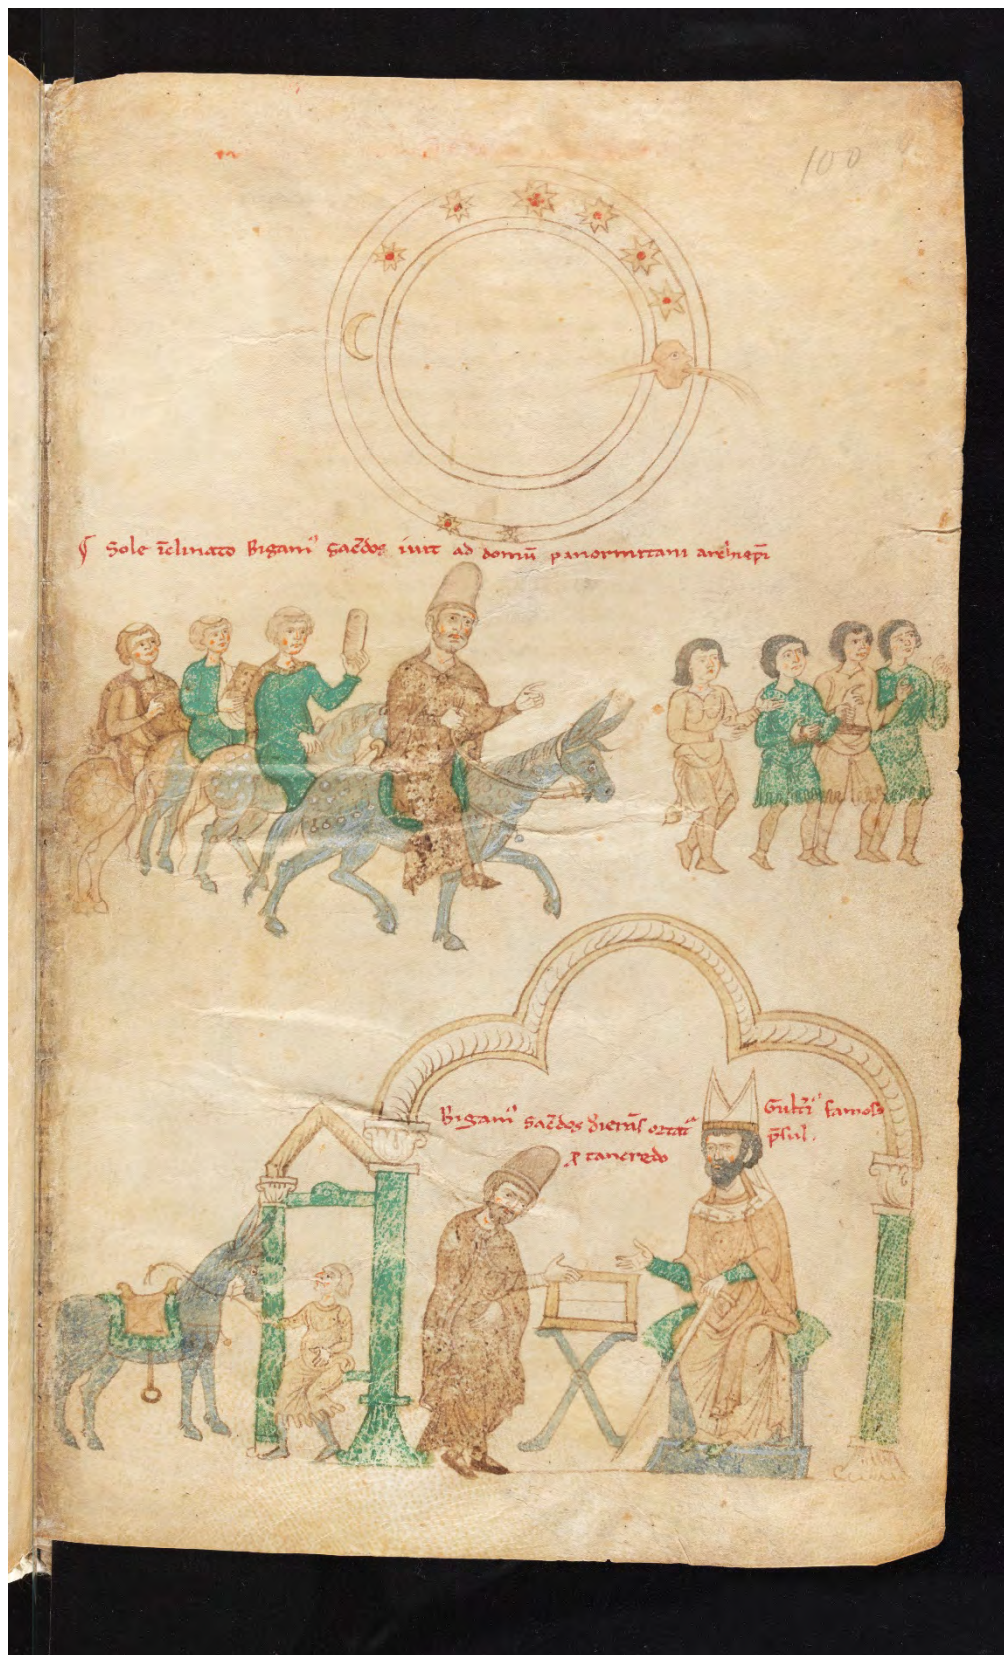 100
¶ Sole īclinato Bigamꝰ sac̄dos iuit ad domū panormitani archiepī
Bigamꝰ sac̄dos
ꝑ tancredo
Gulťiꝰ famosꝰ
p̄sul.